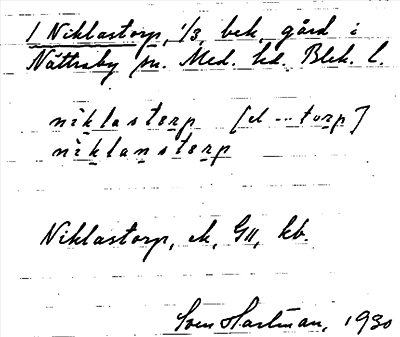 1 Niklastorp, 1/3, bek. gård i
Nättraby sn. Med. hd. Blek. l.
niklasterp [el ... torp]
niklansterp
Niklastorp, ek, G11, kb.
Sven Hartman, 1930